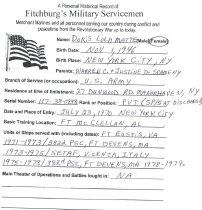 A Personal Historical Record of
Fitchburg's Military Servicemen
Merchant Marines and all personnel serving our country during conflict and
peacetime from the Revolutionary War up to today.
Name: Doris Lyla Female
Birth Date: Nov 1, 1946
Birth Place: New York City, NY
Parents: Warren C. + Justine D.
Branch of Service (or occupation): U.S. Army
Residence at Time of Enlistment: 27 Dunwood Rd, Manorhaven, NY
Serial Number: Rank or Position: PVT (SP5 at discharge)
Date and Place of Entry: July 23, 1970 New York City
Basic Training Location: Ft McClellan, AL
Units or Ships served with (including dates): Ft Eustis, VA
1971-1973/382d PSC, Ft Devens, MA
1973-1975/SETAF, Vicenza, Italy
1975-1978/382d PSC, Ft Devens, MA 1978-1979
Main Theater of Operations and Battles fought in: NA